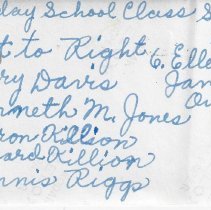 day School Class S
t to Right
ry Davis
nneth M. Jones
ron Killion
ard Killion
nnis Riggs
6. Elle
Jan